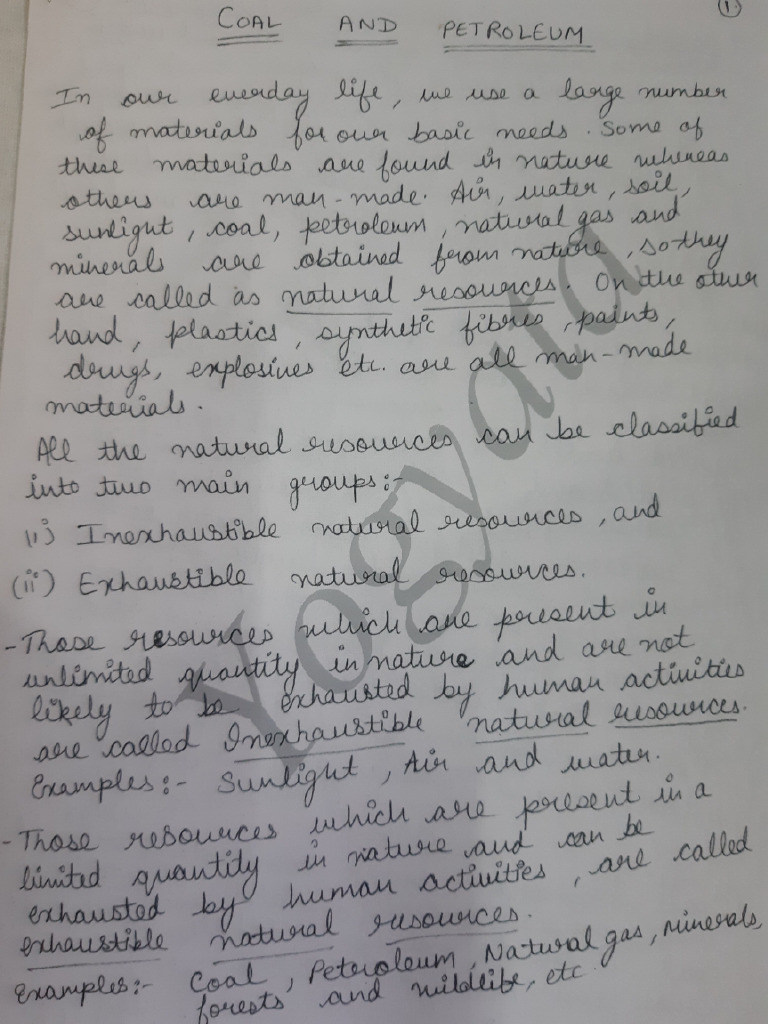 1.
COAL AND PETROLEUM
In our everday life, we use a large number
of materials for our basic needs. Some of
these materials are found in nature whereas
others are man-made. Air, water, soil,
sunlight, coal, petroleum, natural gas and
minerals are obtained from nature, so they
are called as natural resources. On the other
hand, plastics, synthetic fibres, paints,
drugs, explosives etc. are all man-made
materials.
All the natural resources can be classified
into two main groups:-
(i) Inexhaustible natural resources, and
(ii) Exhaustible natural resources.
- Those resources which are present in
unlimited quantity in nature and are not
likely to be exhausted by human activities
are called Inexhaustible natural resources.
Examples:- Sunlight, Air and water.
- Those resources which are present in a
limited quantity in nature and can be
exhausted by human activities, are called
exhaustible natural resources.
Examples:- Coal, Petroleum, Natural gas, Minerals,
forests and wildlife, etc.
Yogyata